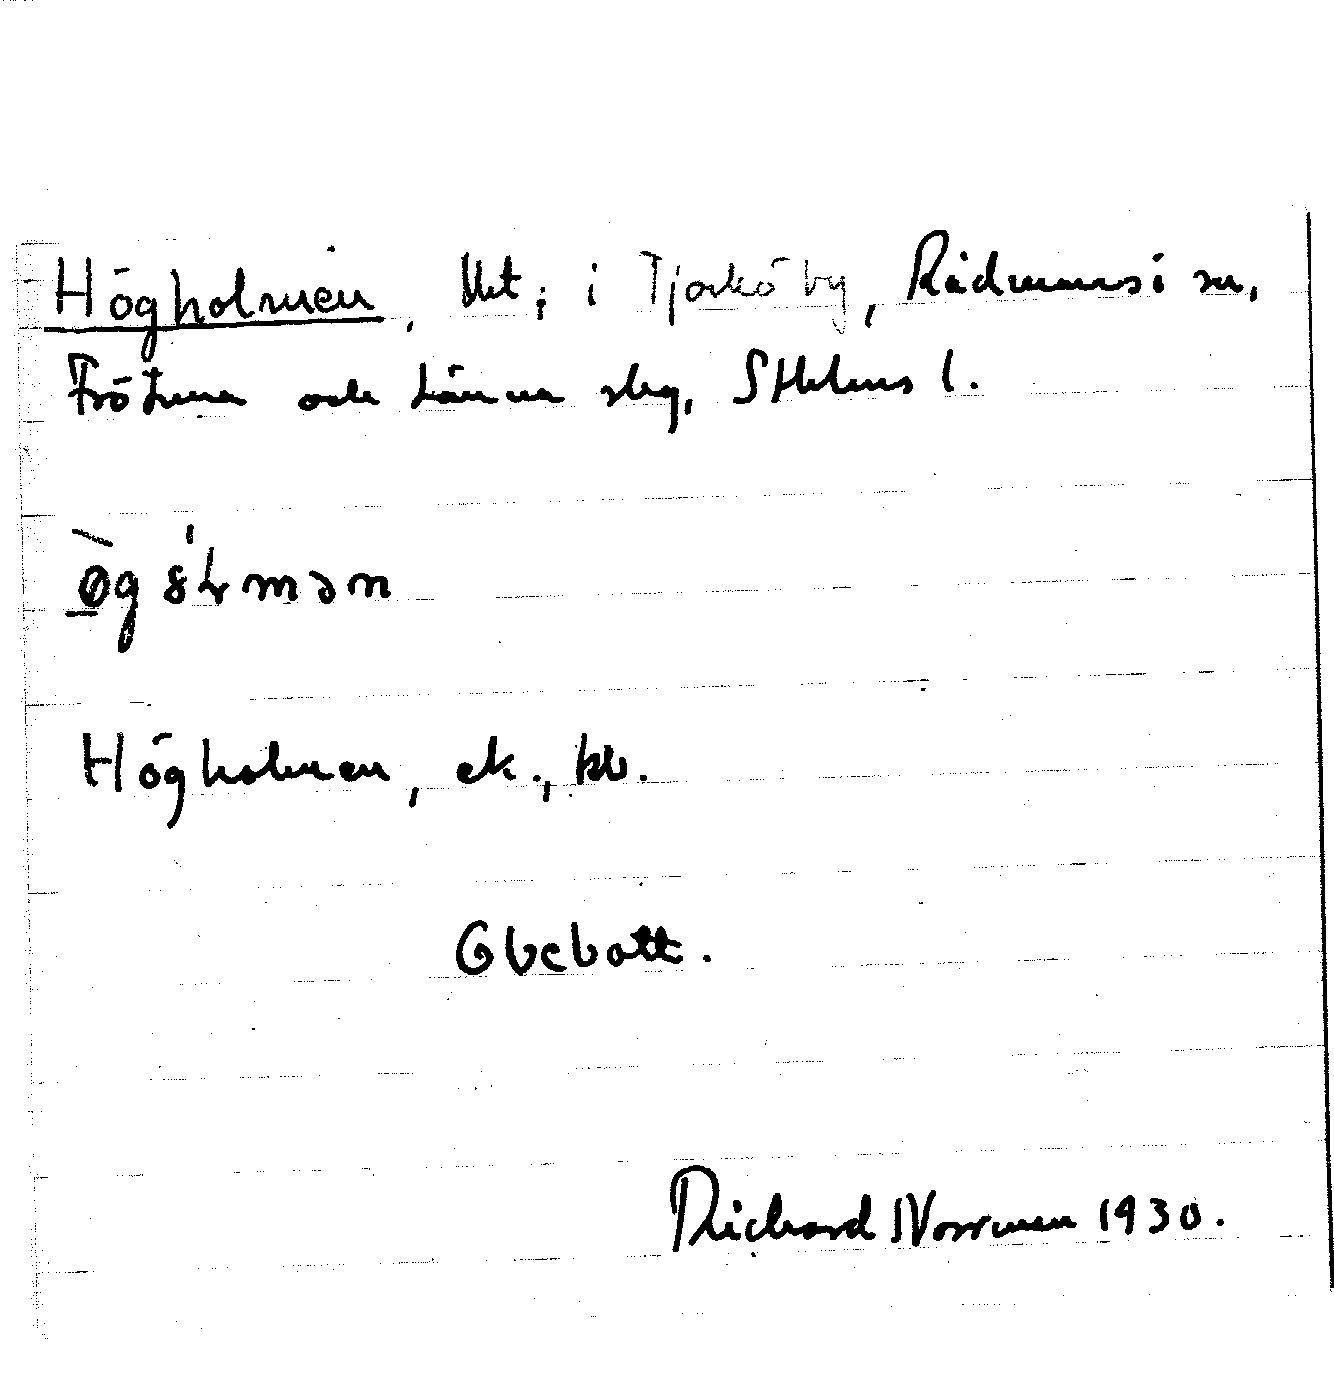 Högholmen, Utt; i Tjockö by, Rådmansö sn,
Frötuna och Länna skg, Sthlms l.
Högholmen, ek., kb.
Richard Norrman 1930.